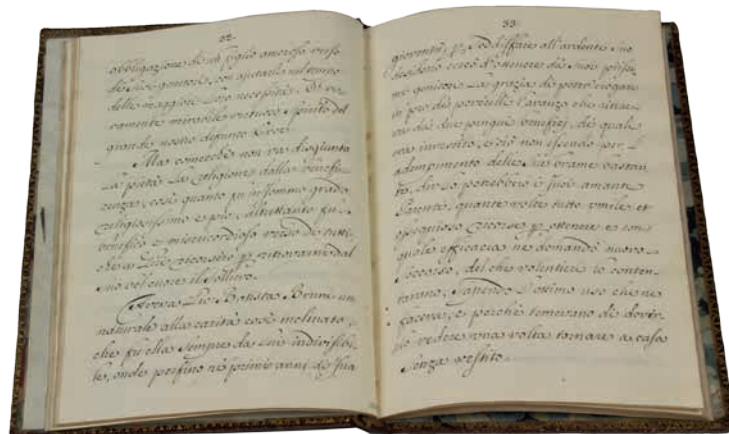 32
obbligazione di un figlio amoroso verso
de' suoi genitori, con ajutarli nel tempo
delle maggiori loro necessità. Et ve-
ramente mirabile virtuoso spirito del
grande nostro defunto Eroe.
Ma comecchè non va disgiunta
la pietà la religione dalla benefi-
cenza, così quanto fu in sommo grado
religiosissimo e pio, altrettanto fu
benefico e misericordioso verso di tutti,
che a Lui ricorsero p. ritrovarne dal
suo bel cuore il sollievo.
Aveva Gio Battista Bruni un
naturale alla carità così inclinato,
che fù ella sempre da lui indivisibi-
le, onde perfino ne primi anni di sua
33
gioventù, p. soddisfare all'ardente suo
desiderio cercò d'ottenere da' suoi piissi-
mi genitori la grazia di poter erogare
in pro dei poverelli l'avanzo che ritrae-
va dai due pingui benefizj, de quali
era investito, e ciò non essendo per l'
adempimento delle sue brame bastan-
te,
potrebbero i suoi amanti
Parenti, quante volte tutto umile et
ossequioso ricorse p. ottenere e con
quale efficacia ne domandò nuovo
soccorso, del che volentieri lo conten-
tarono, sapendo l'ottimo uso che ne
faceva, e perchè temevano di dover-
lo vedere una volta tornare a casa
senza vestito.